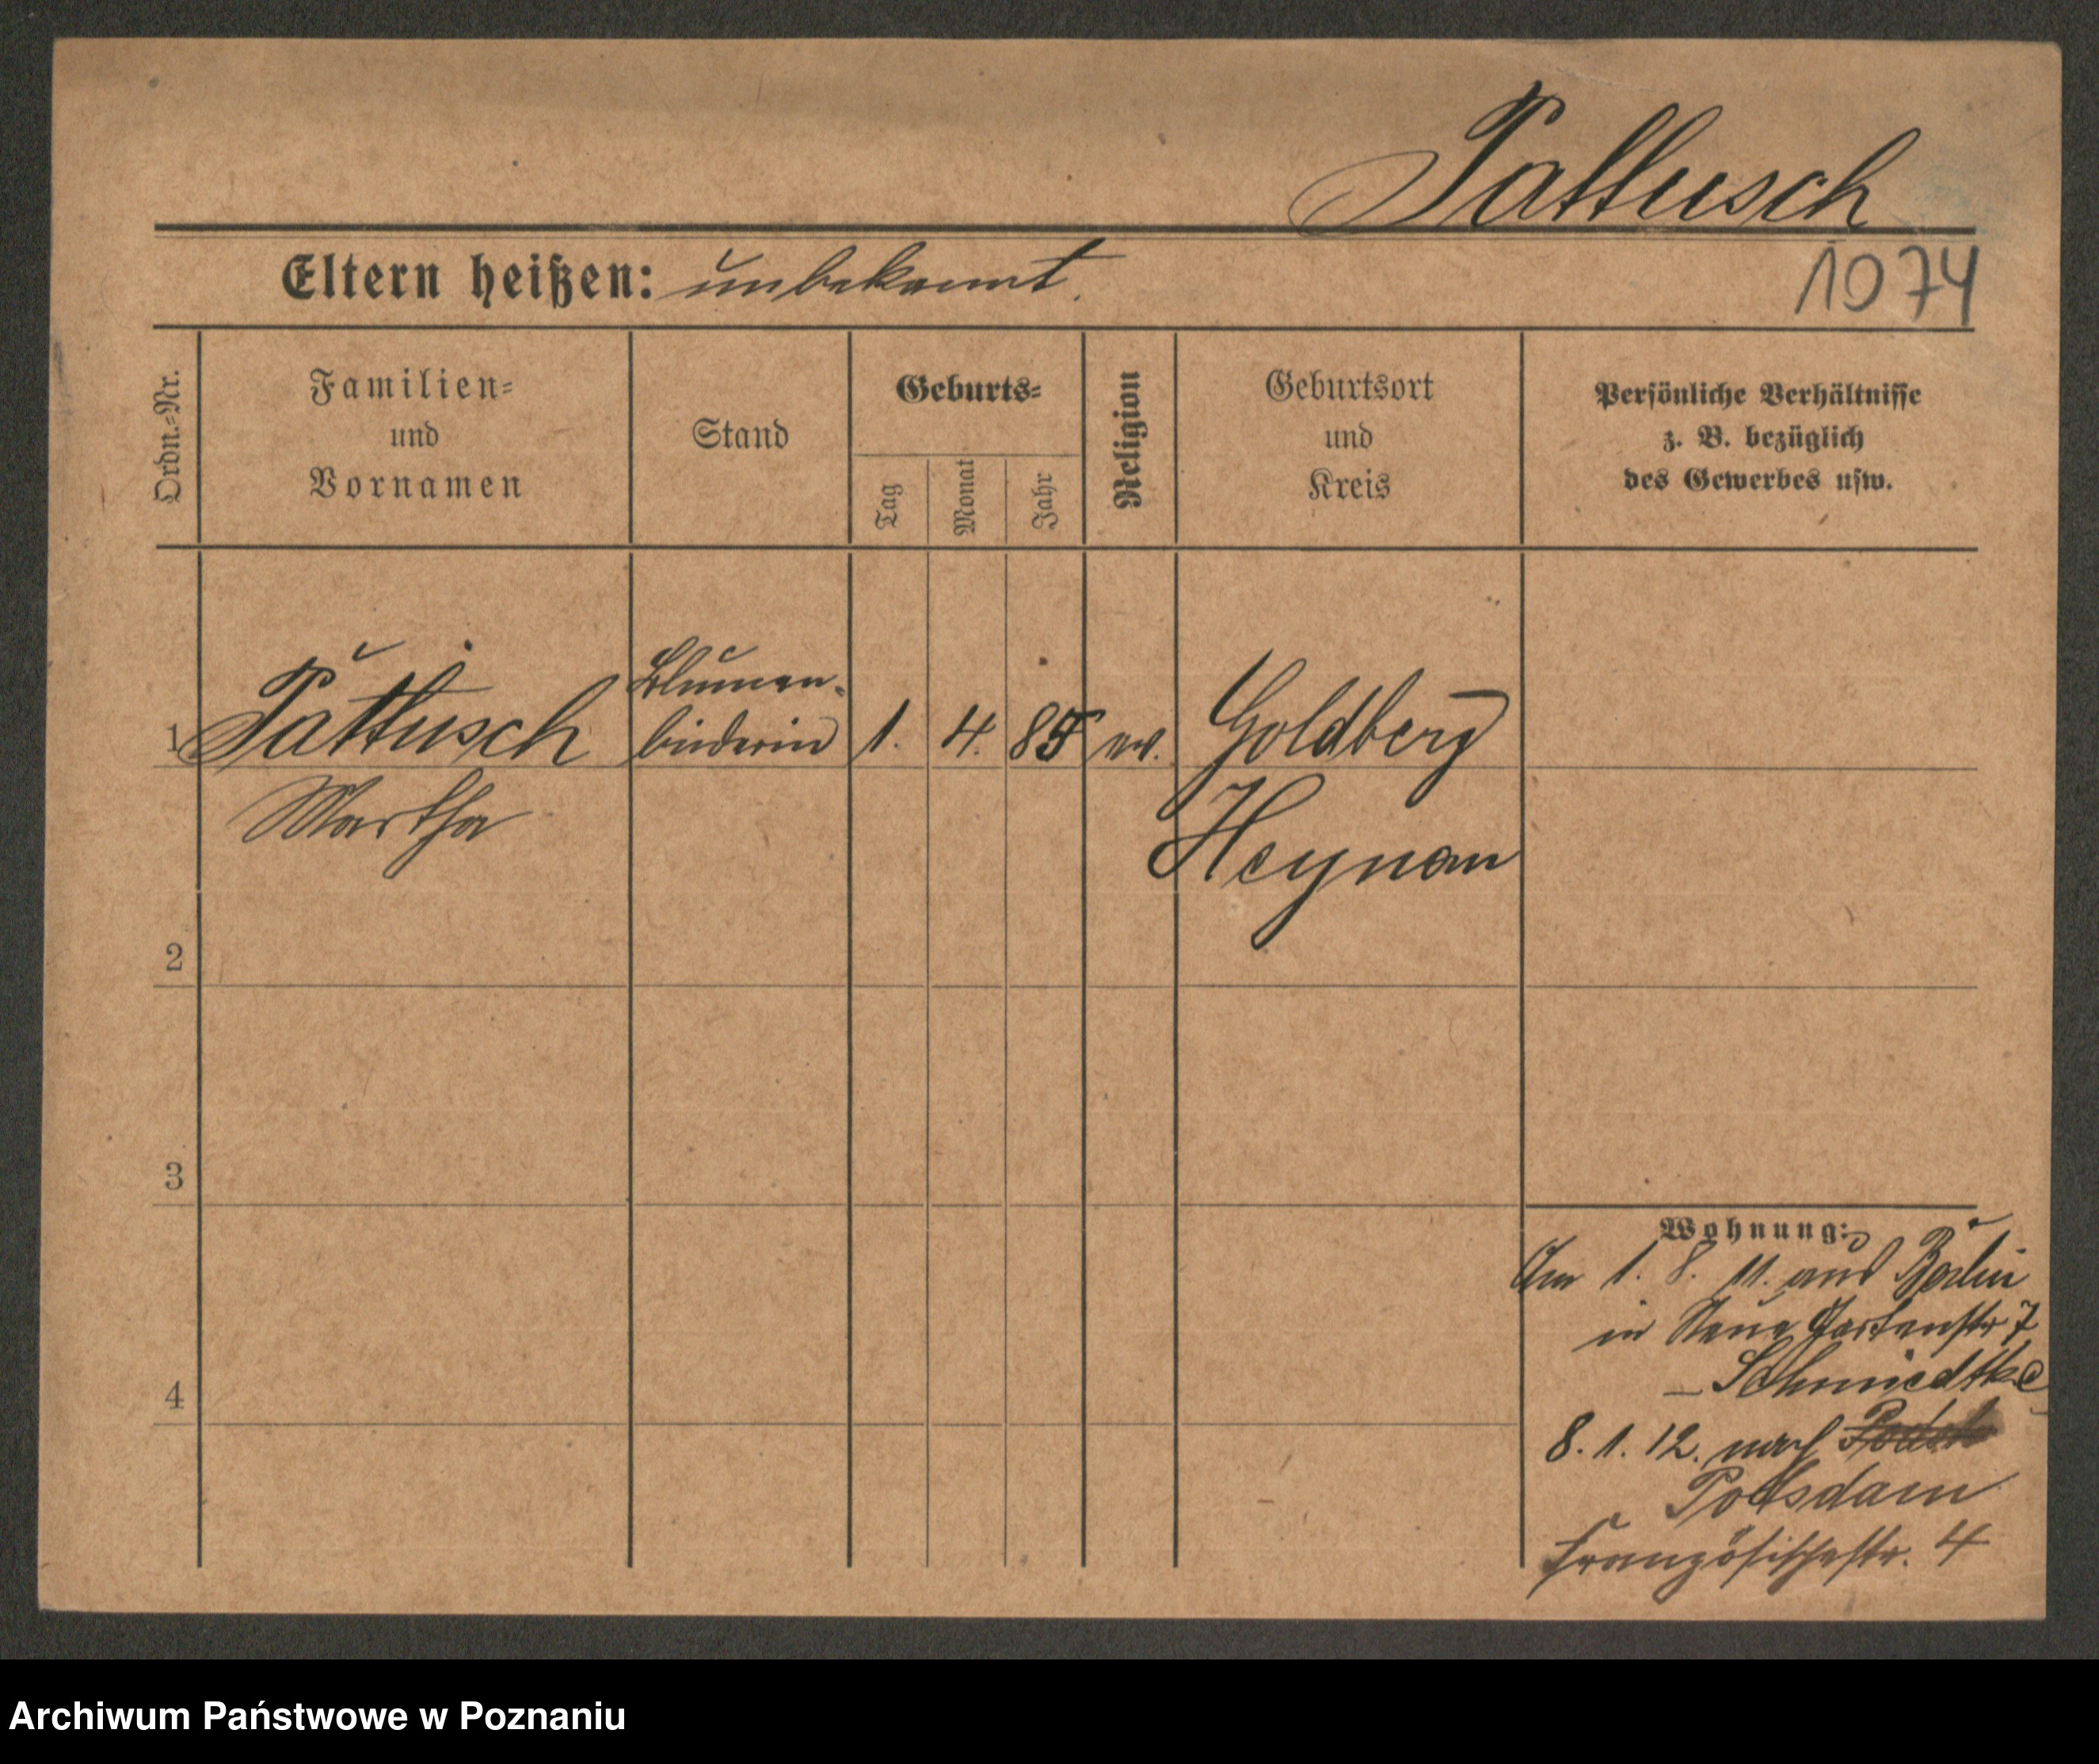 Pattusch
Eltern heißen: unbekannt.
1074
Ordn.=Nr.
Familien=
und
Vornamen
Stand
Geburts=
Tag
Monat
Jahr
Religion
Geburtsort
und
Kreis
Persönliche Verhältnisse
z. B. bezüglich
des Gewerbes usw.
1
Pattusch
Martha
Blumen-
binderin
1.
4.
85
ev.
Goldberg
Heynau
2
3
4
Wohnung:
Am 1. 8. 11. aus Berlin
in Neue Gartenstr 7
– Schmiedtke
8. 1. 12. nach
Potsdam
Französischestr. 4
Archiwum Państwowe w Poznaniu